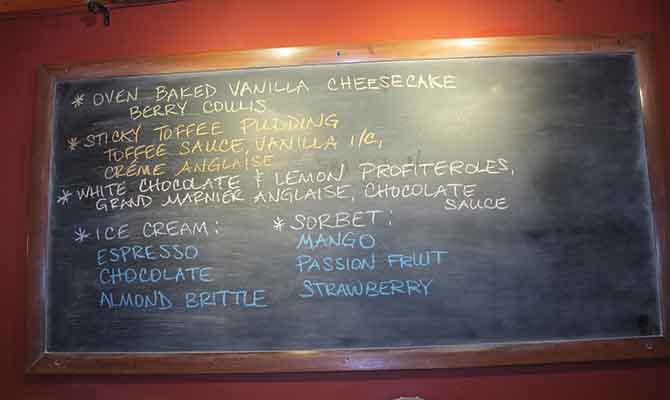 * OVEN BAKED VANILLA CHEESECAKE
BERRY COULIS
* STICKY TOFFEE PUDDING
TOFFEE SAUCE, VANILLA I/C,
CRÉME ANGLAISE
* WHITE CHOCOLATE & LEMON PROFITEROLES,
GRAND MARNIER ANGLAISE, CHOCOLATE
SAUCE
* ICE CREAM:
ESPRESSO
CHOCOLATE
ALMOND BRITTLE
* SORBET:
MANGO
PASSION FRUIT
STRAWBERRY